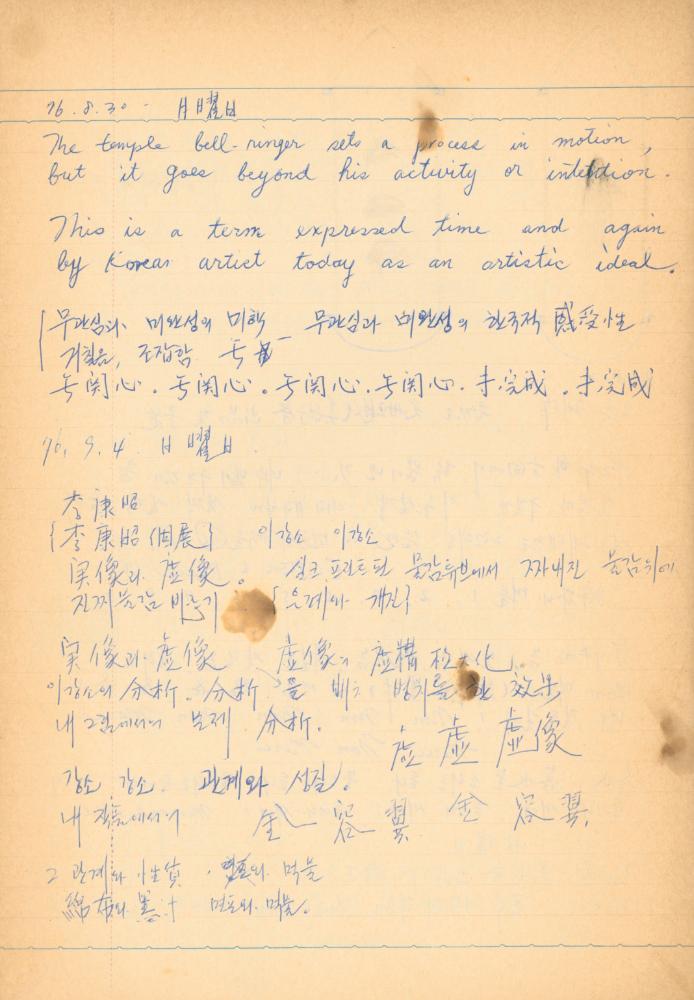 76. 8. 30 - 日曜日
The temple bell-ringer sets a process in motion,
but it goes beyond his activity or intention.
This is a term expressed time and again
by Korean artist today as an artistic ideal.
무관심과 미완성의 미학 무관심과 미완성의 한국적 感受性
거칠음, 조잡함 무
무関心. 무関心. 무関心. 무関心. 未完成. 未完成
76. 9. 4 日曜日
李康昭
{李康昭 個展} 이강소 이강소
実像과 虚像. 실크 프린트된 물감튜브에서 짜내진 물감위에
진짜물감 바르기
実像과 虚像 虚像의 虚構 極大化.
이강소의 分析. 分析을 병치를 한 効果
내 그림에서의 문제 分析.
虚 虚 虚像
강소 강소 관계와 성질.
내 작품에서의 金 容 翼 金 容 翼
그 관계와 性質. 먹물
綿布와 墨汁 면포와 먹물.